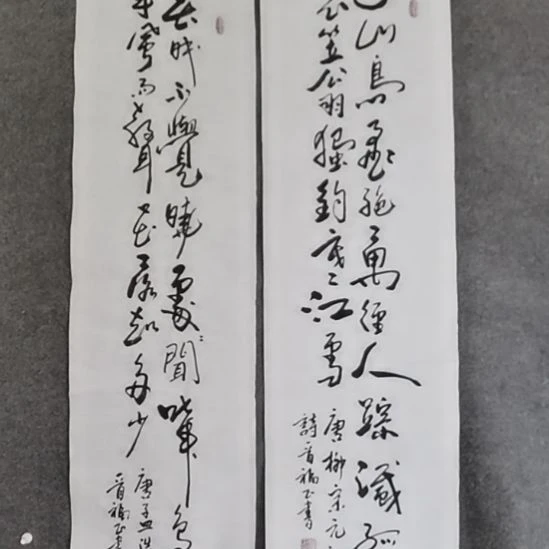 山鳥飛絕萬徑人踪滅孤
笠翁獨釣寒江雪
唐柳宗元
詩晋福玉書
眠不覺曉處〻聞啼鳥
風雨聲花落知多少
唐孟浩
晋福玉書